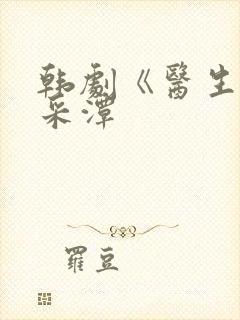 韩劇《醫生
采潭
羅豆